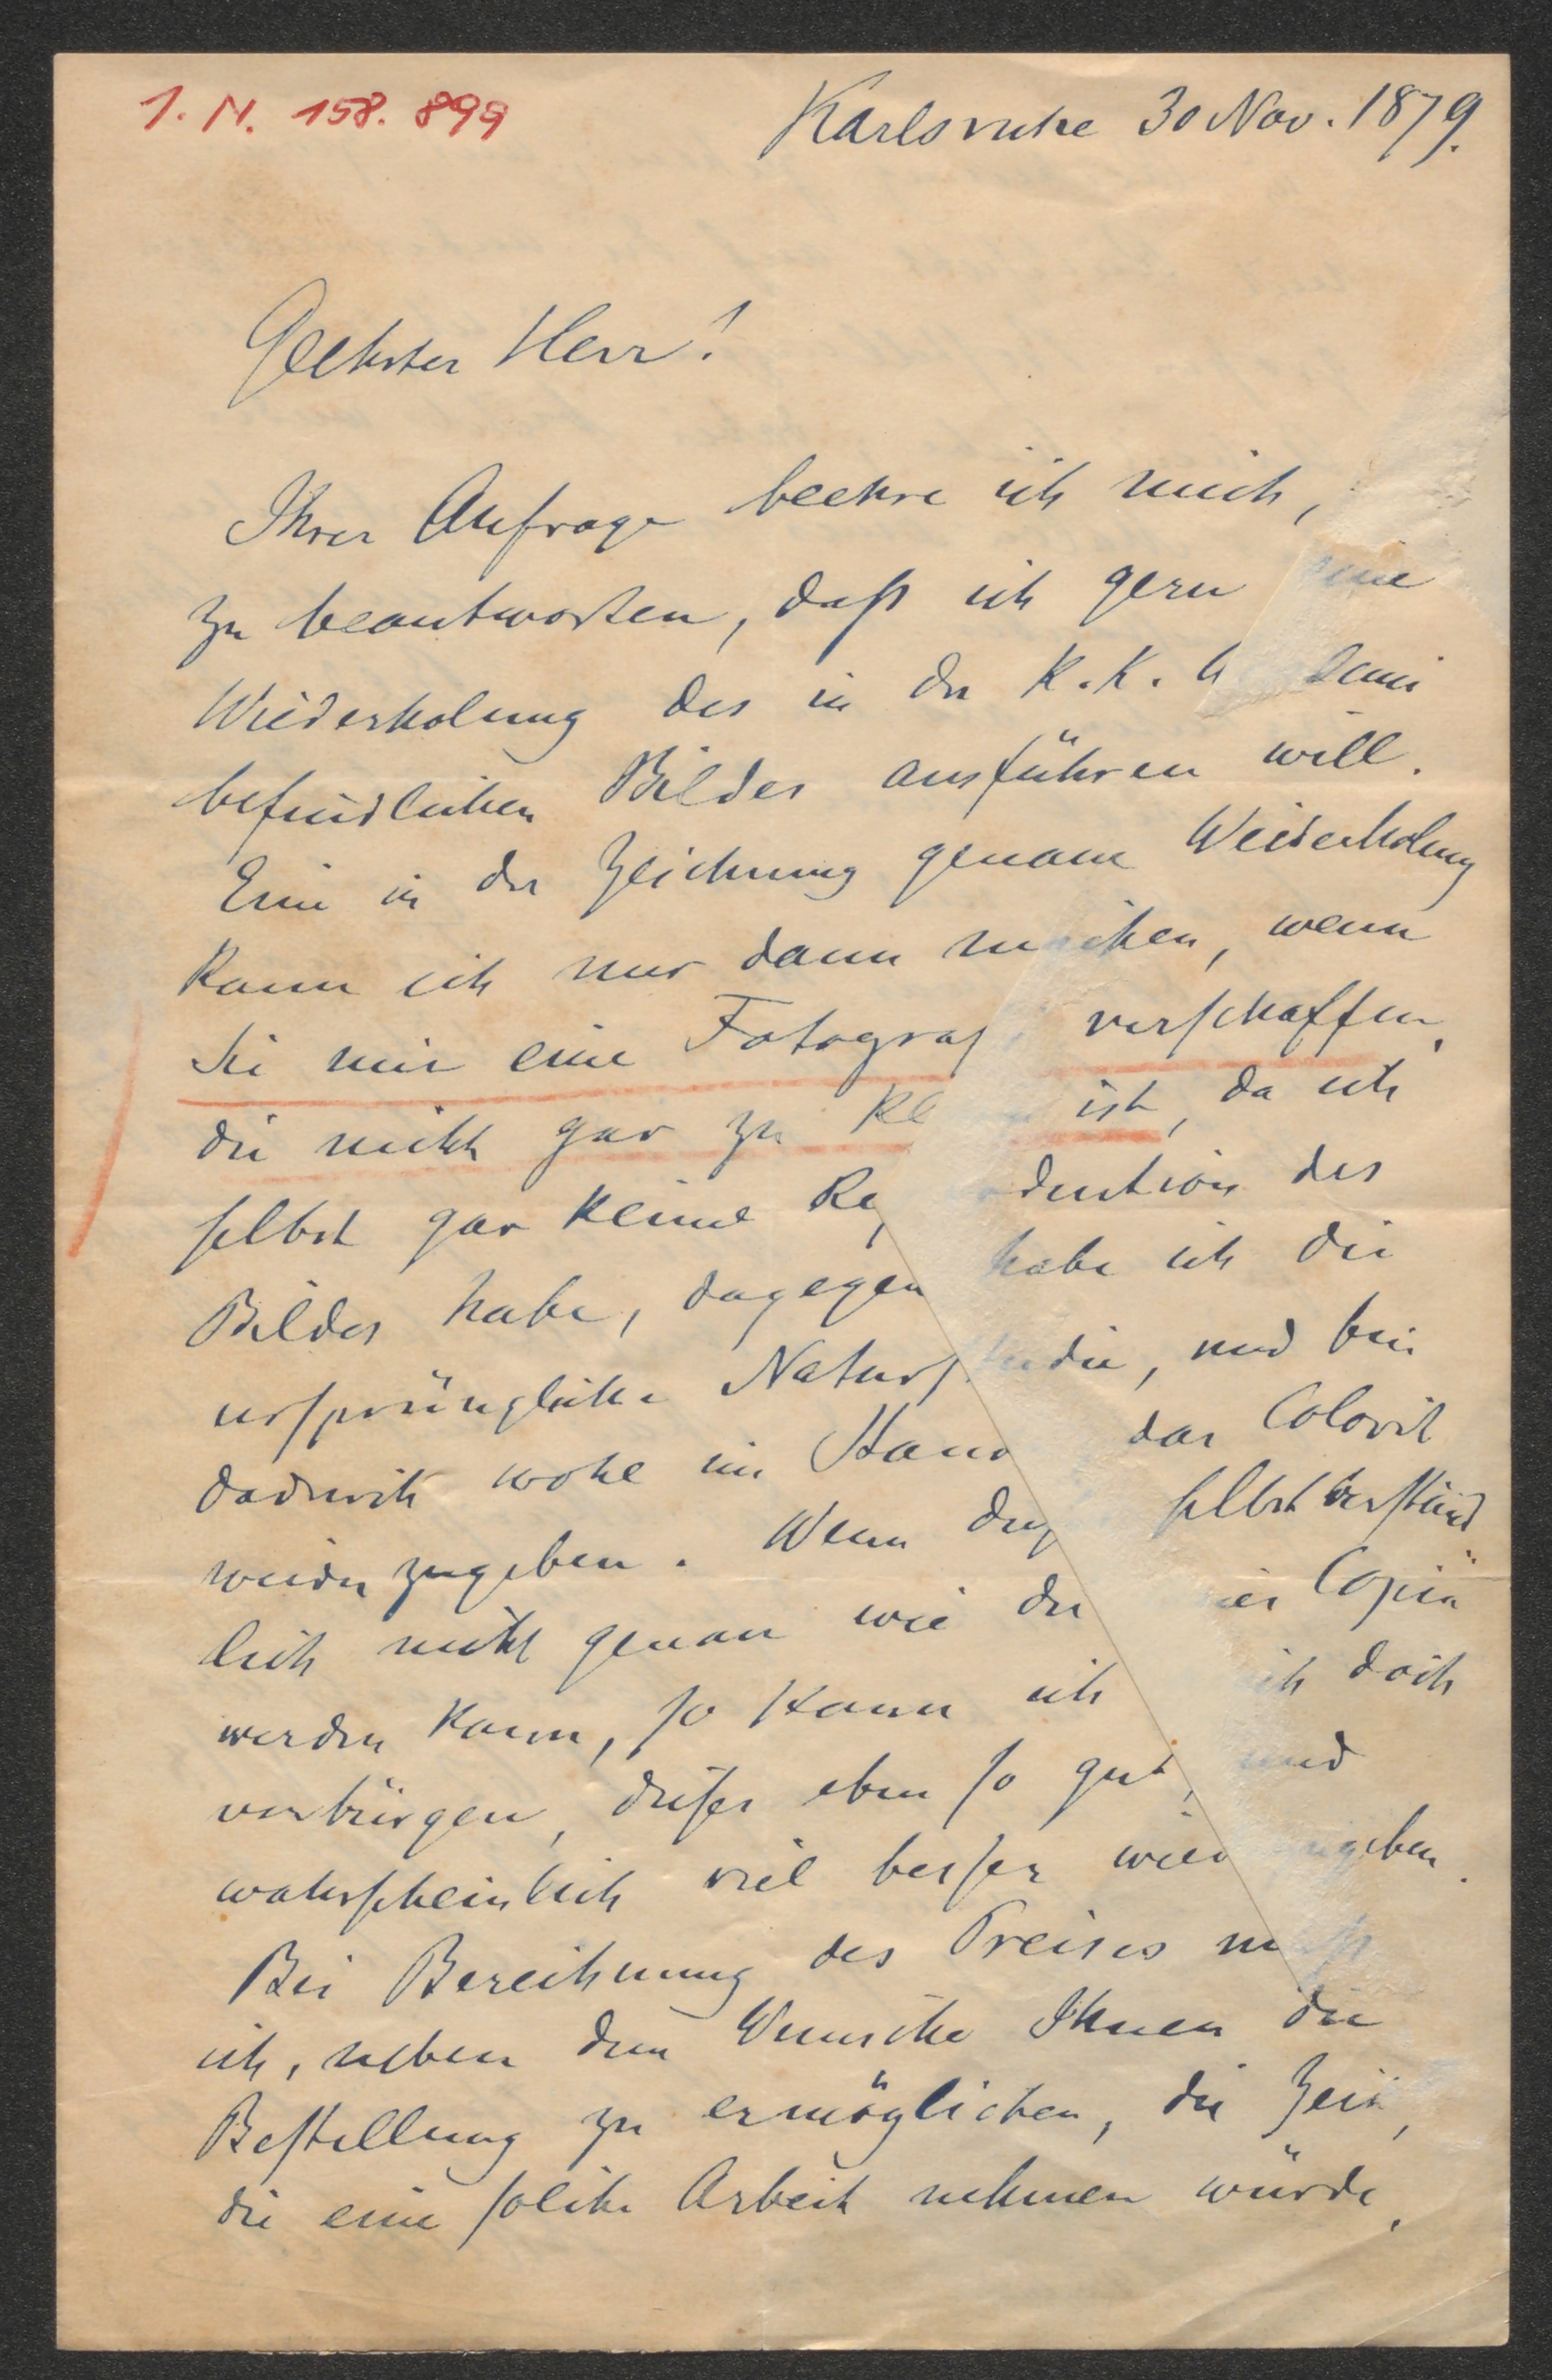 I. N. 158.899
Karlsruhe 30 Nov. 1879.
Geehrter Herr!
Ihrer Anfrage beehre ich mich,
zu beantworten, daß ich gern eine
Wiederholung des in der K. K.
befindlichen Bildes ausführen will.
Eine in der Zeichnung genaue Wiederholung
kann ich nur dann machen, wenn
Sie mir eine Fotograf verschaffen,
die nicht gar zu kl ist, da ich
selbst gar keine Re duktion des
Bildes habe, dagegen habe ich die
ursprüngliche Naturstudie, und bin
dadurch wohl im Stand das Colorit
wieder zugeben. Wenn selbstverständ
lich nicht genau wie der Copia
werden kann, so kann ich ich doch
verbürgen, dieses eben so gut, und
wahrscheinlich viel besser wied ugeben.
Bei Berechnung des Preises muß
ich, neben dem Wunsche Ihnen die
Bestellung zu ermöglichen, die Zeit,
die eine solche Arbeit nehmen würde,